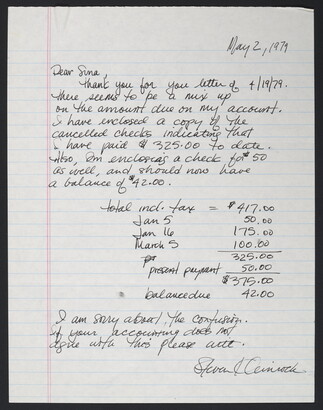 May 2, 1979
Dear Sina,
Thank you for you letter of 4/19/79.
There seems to be a mix up
on the amount due on my account.
I have enclosed a copy of the
cancelled checks indicating that
I have paid $325.00 to date.
Also, Im enclosing a check for $50
as well, and should now have
a balance of $42.00.
total incl. tax = $417.00
Jan 5 50.00
Jan 16 175.00
March 5 100.00
325.00
present payment 50.00
$375.00
balance due 42.00
I am sorry about the confusion.
If your accounting does not
agree with this please write.
Steven